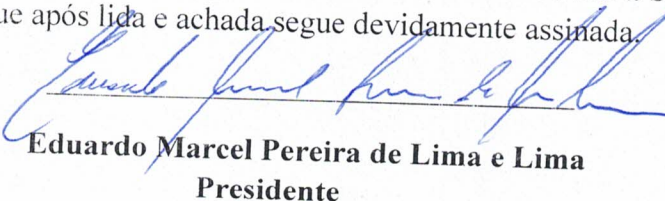 ue após lida e achada segue devidamente assinada.
Eduardo Marcel Pereira de Lima e Lima
Presidente